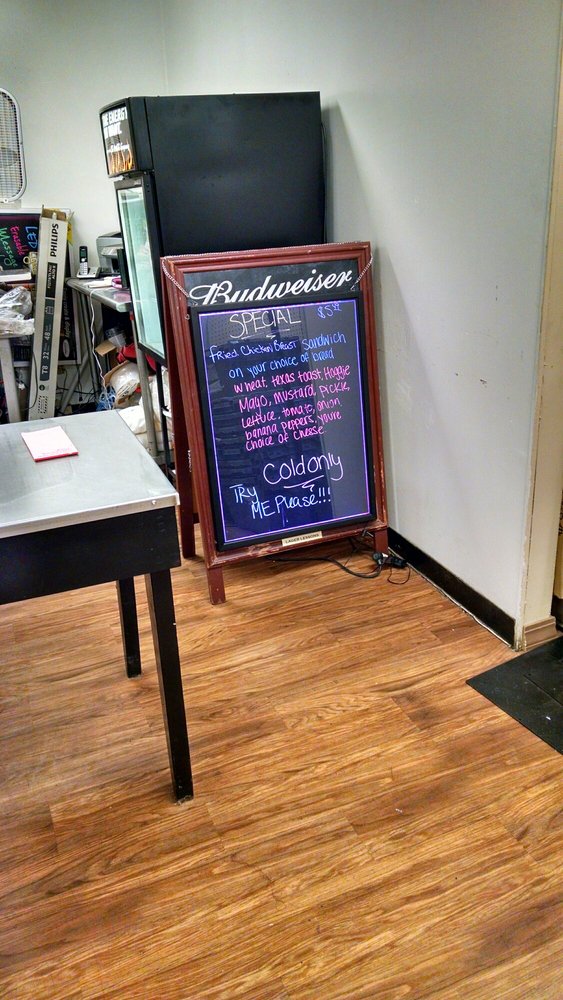 Budweiser
SPECIAL
Fried Chicken Breast Sandwich
on your choice of bread
wheat, texas toast, Hoggie
Mayo, Mustard, Pickle,
Lettuce, tomato, onion
banana peppers, you're
choice of cheese.
Cold only
TRY
ME Please!!!
LAGER LESSONS
PHILIPS
T8 32 48
LED
Erasable
Message